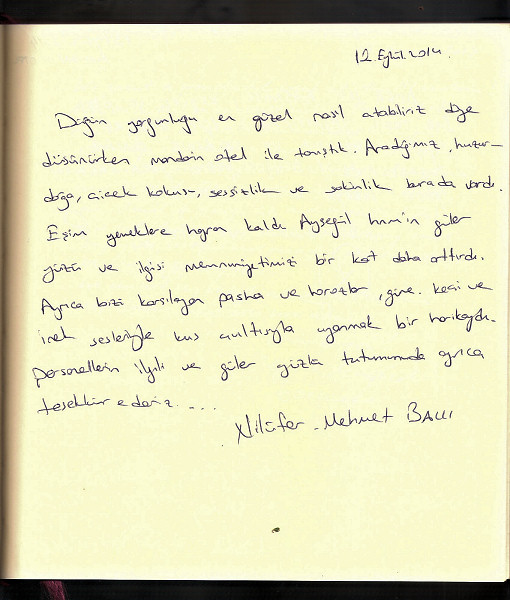 12.Eylül.2014.
Düğün yorgunluğu en güzel nasıl atabiliriz diye
düşünürken mandarin otel ile tanıştık. Aradığımız, huzur-
doğa, çiçek kokusu, sessizlik ve sakinlik burada vardı.
Eşim yemeklere hayran kaldı Ayşegül hnm'ın güler
yüzü ve ilgisi memnuniyetimizi bir kat daha arttırdı.
Ayrıca bizi karşılayan pasha ve horozlar, yine keçi ve
inek sesleriyle kuş cıvıltısıyla uyanmak bir harikaydı.
Personellerin ilgili ve güler yüzlü tutumunuda ayrıca
teşekkür ederiz....
Nilüfer - Mehmet BALLI